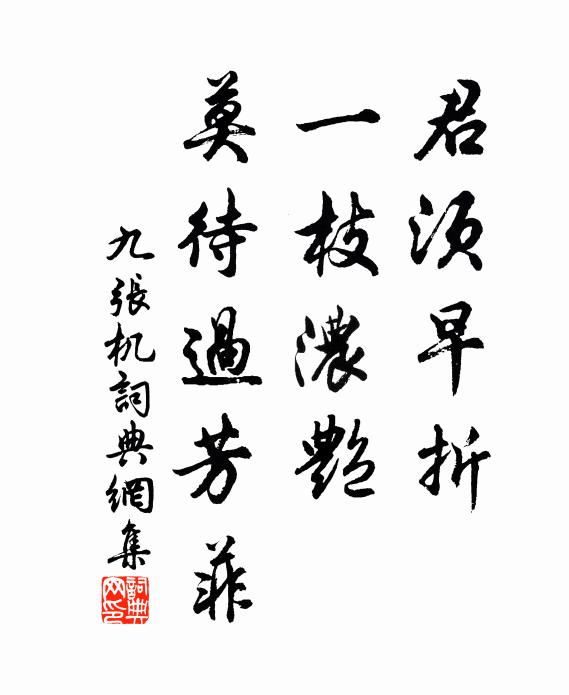 君須早折
一枝濃艷
莫待過芳菲
九張机詞典網集
詞典网印